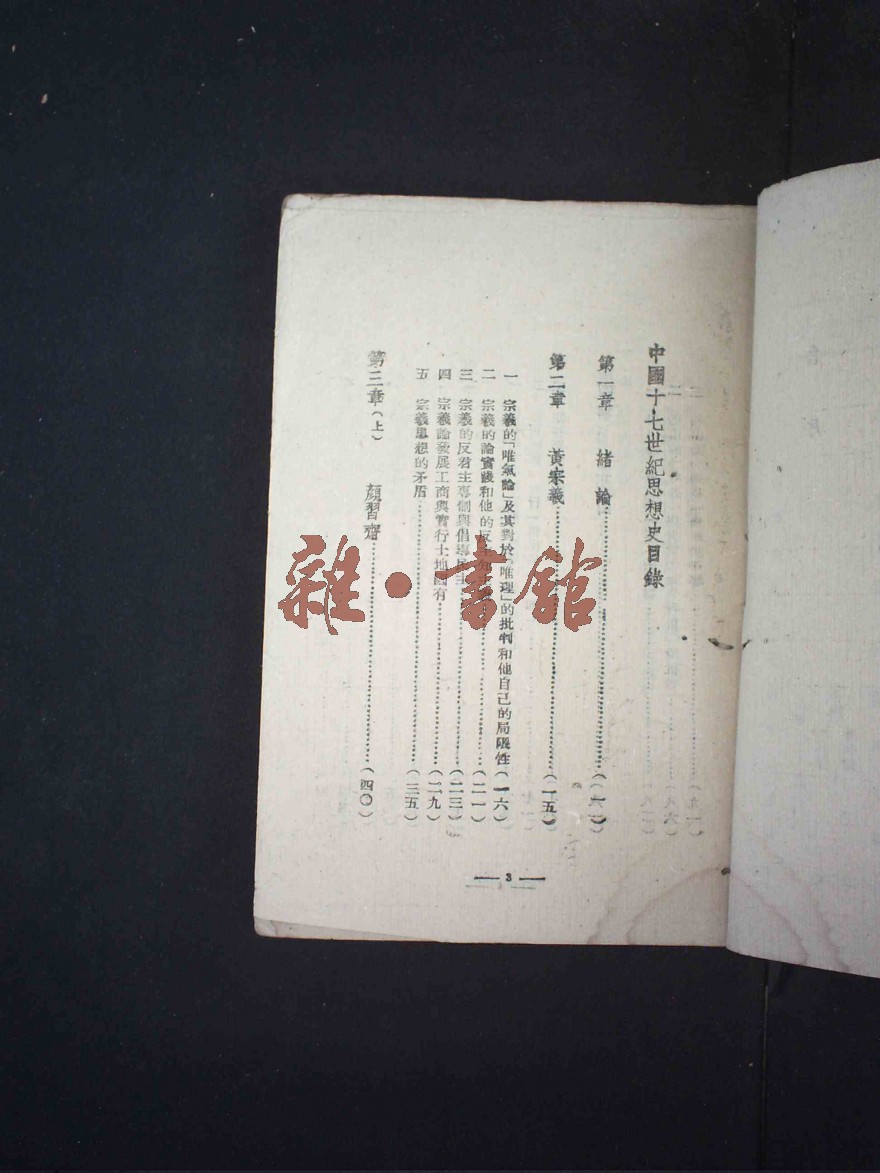 中國十七世紀思想史目錄
第一章 緒論……(一)
第二章 黃宗羲……(一五)
一 宗羲的「唯氣論」及其對於「唯理」的批判和他自己的局限性(一六)
二 宗羲的論實踐和他的反……(二一)
三 宗羲的反君主專制與倡導民主……(二三)
四 宗羲論發展工商與實行土地國有……(二九)
五 宗羲思想的矛盾……(三五)
第三章(上) 顏習齋……(四〇)
— 3 —
雜·書館